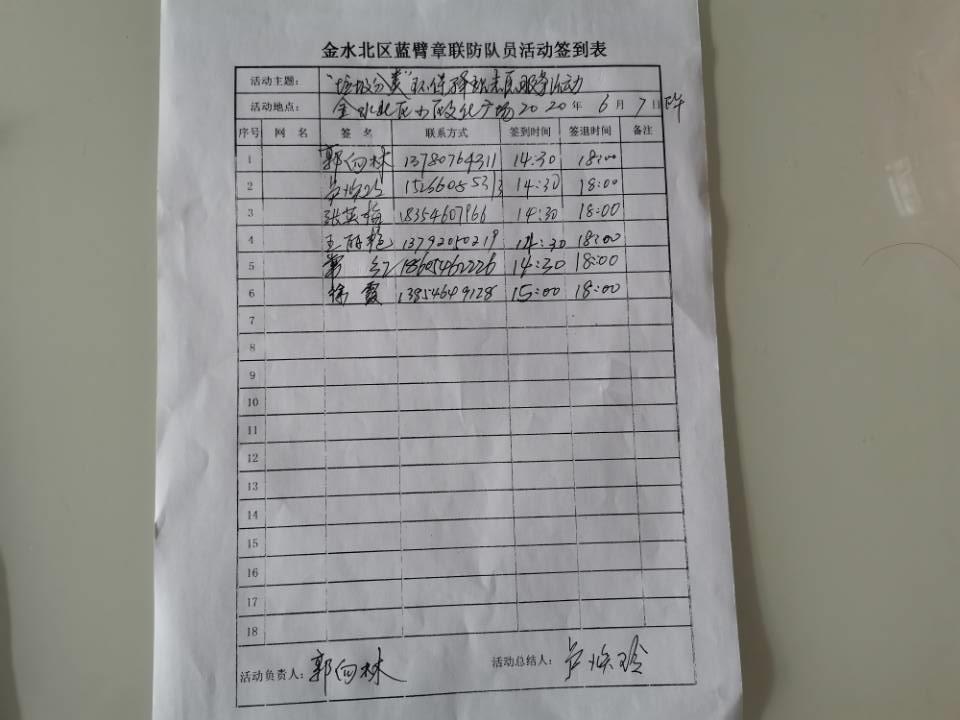 金水北区蓝臂章联防队员活动签到表
活动主题: "垃圾分类"环保 志愿服务活动
活动地点: 金水北区 文化广场 2020年 6月 7日 下午
序号 网 名 签 名 联系方式 签到时间 签退时间 备注
1 郭向林 13780764311 14:30 18:00
2 卢焕玲 14:30 18:00
3 张英梅 18354607966 14:30 18:00
4 王 13792050219 14:30 18:00
5 常红 18605462226 14:30 18:00
6 徐霞 13854649128 15:00 18:00
7
8
9
10
11
12
13
14
15
16
17
18
活动负责人: 郭向林 活动总结人: 卢焕玲